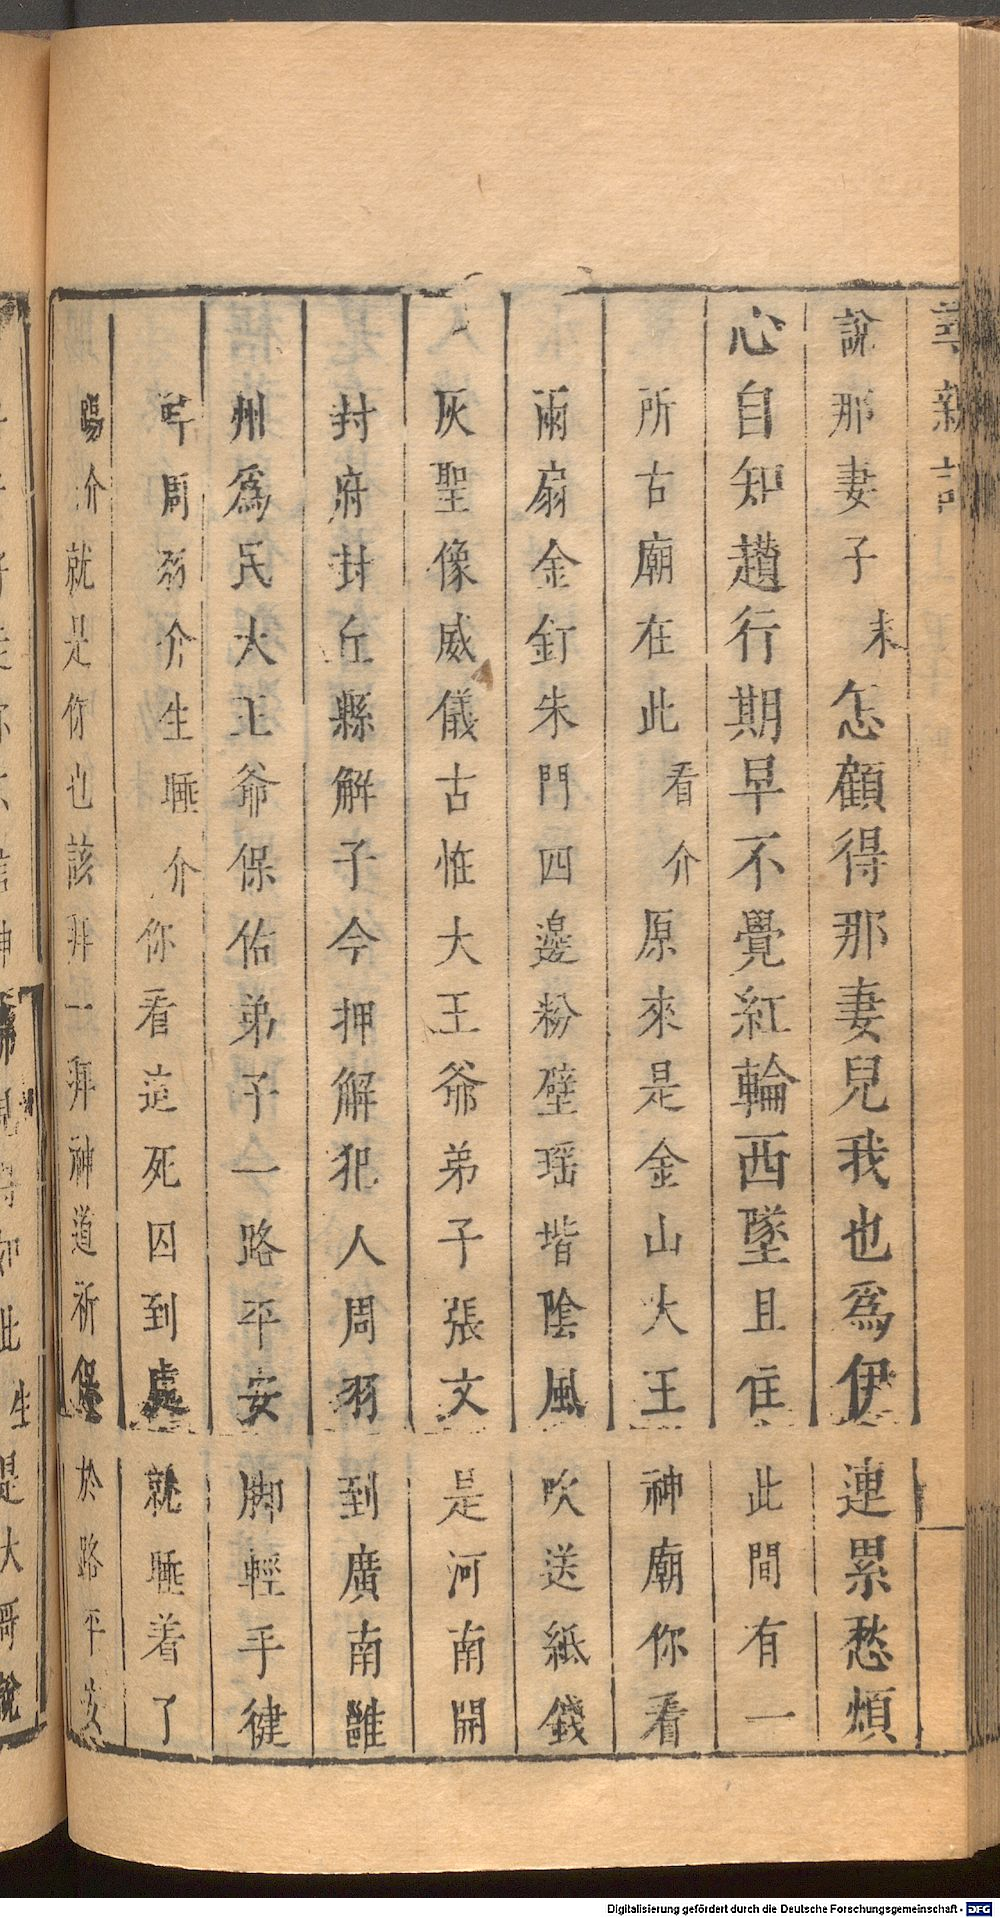 尋親記
說那妻子末怎顧得那妻兒我也為伊連累愁煩
心自知趲行期早不覺紅輪西墜且住此間有一
所古廟在此看介原來是金山大王神廟你看
兩扇金釘朱門四邊粉壁瑤堦陰風吹送紙錢
灰聖像威儀古恠大王爺弟子張文是河南開
封府封丘縣解子今押解犯人周羽到廣南雝
州為民大王爺保佑弟子一路平安脚輕手健
周羽介生睡介你看這死囚到處就睡着了
介就是你也該拜一拜神道祈保於路平安
如此生是大哥說
Digitalisierung gefördert durch die Deutsche Forschungsgemeinschaft - DFG